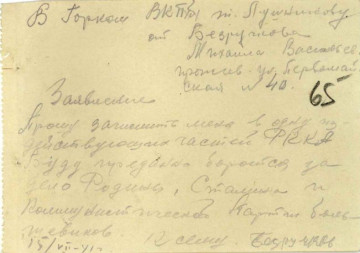 В Горком ВКП(б) т. Пушникову
от Безручкова
Михаила Василье
прожив. ул. Первомай
ская № 40. 65
Заявление
Прошу зачислить меня в одну из
действующих частей РККА
Буду преданно бороться за
дело Родины, Сталина и
Коммунистической Партии боль
шевиков.
15/VII-41г. К сему Безручков